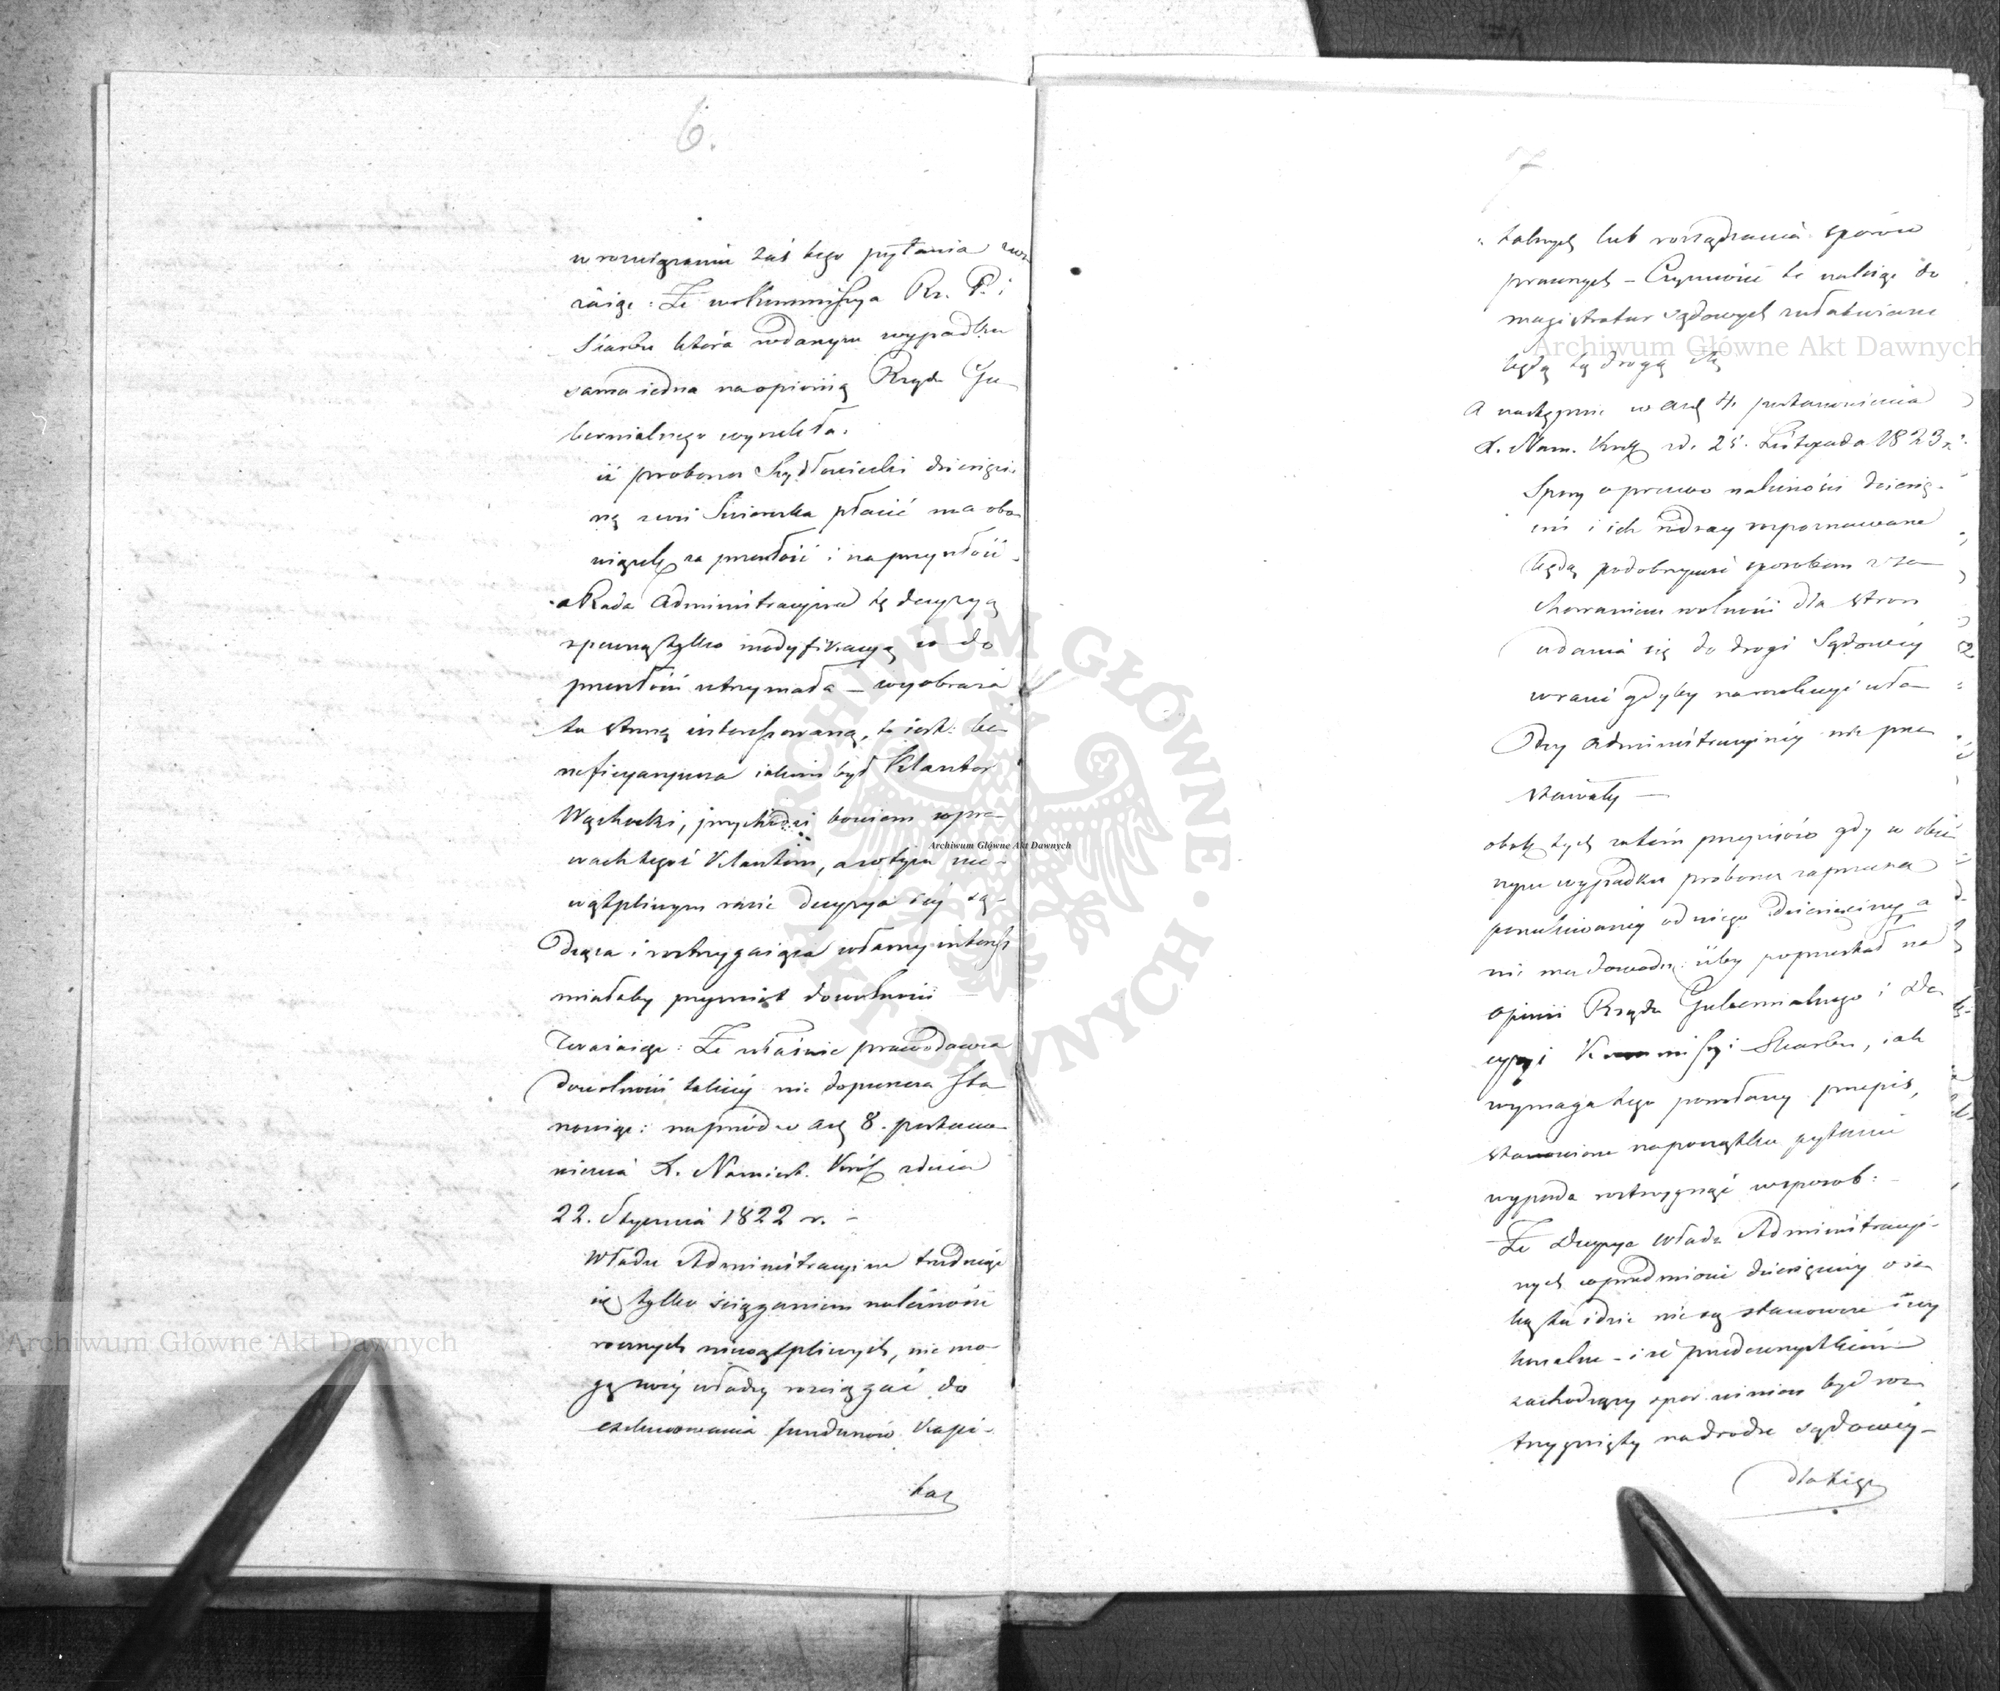 6.
w rozwiązaniu zaś tego pytania zwa
żaiąc: Że w Kommissya Rz. P. i
Skarbu która w danym wypadku
sama iedna na opinią Rządu Gu-
bernialnego wyrzekła.
iż proboszcz Szydłowiecki dziesięci-
nę z wsi płacić ma obo-
wiązek za przeszłość i na przyszłość -
a Rada Administracyjna tę decyzyą
z pewną tylko modyfikacyą co do
przeszłości utrzymała - wyobraża
tu stronę interessowaną, to iest: be-
neficyanjusza iakim był Klasztor
Wąchocki, przychodzi bowiem w pra-
wach tegoż Klasztoru, a w tym nie-
wątpliwym razie decyzya iéy są-
dząca i rozstrzygaiąca własny interess
miałaby przymiot dowolności
Zważaiąc: Że właśnie prawodawca
dowolności takiéy nie dopuszcza sta
nowiąc: naprzód w art 8. postano-
wienia X. Namiest. Król z dnia
22. Stycznia 1822 r. -
Władze Administracyjne trudniąc
się tylko ściąganiem należności
rocznych niewątpliwych, nie mo-
gą swéy władzy rozciągać do
exekwowania funduszów kapi-
tal
7
talnych lub rozsądzania sporów
prawnych - Czynności te należąc do
magistratur sądowych załatwiane
będą tą drogą
A następnie w art 4. postanowienia
X. Nam. Król z d. 25. Listopada 1823 r.:
Spory o prawo należności dziesię-
cin i ich rodzay rozpoznawane
będą podobnymże sposobem z za-
chowaniem wolności dla stron
udania się do drogi Sądowéy
w razie gdyby na rezolucyi wła-
dzy administracyinéy nie prze
stawały -
obok tych zatém przepisów gdy w obec
nym wypadku proboszcz zaprzecza
poszukiwanéy od niego dziesięciny a
nie ma dowodu: iżby poprzestał na
opinii Rządu Gubernialnego i de-
cyzyi Kommissyi Skarbu, iak
wymaga tego powołany przepis,
stanowione na początku pytanie
wypada rozstrzygnąć w sposób: -
Że decyzye Władz Administracyi-
nych w przedmiocie dziesięciny o ia-
ką tu idzie nie są stanowcze i wy
konalne - i że przedewszystkiém
zachodzący spór winien być roz
trzygnięty na drodze sądowéy -
dla tego
Archiwum Główne Akt Dawnych
Archiwum Główne Akt Dawnych
Archiwum Główne Akt Dawnych
ARCHIWUM GŁÓWNE AKT DAWNYCH